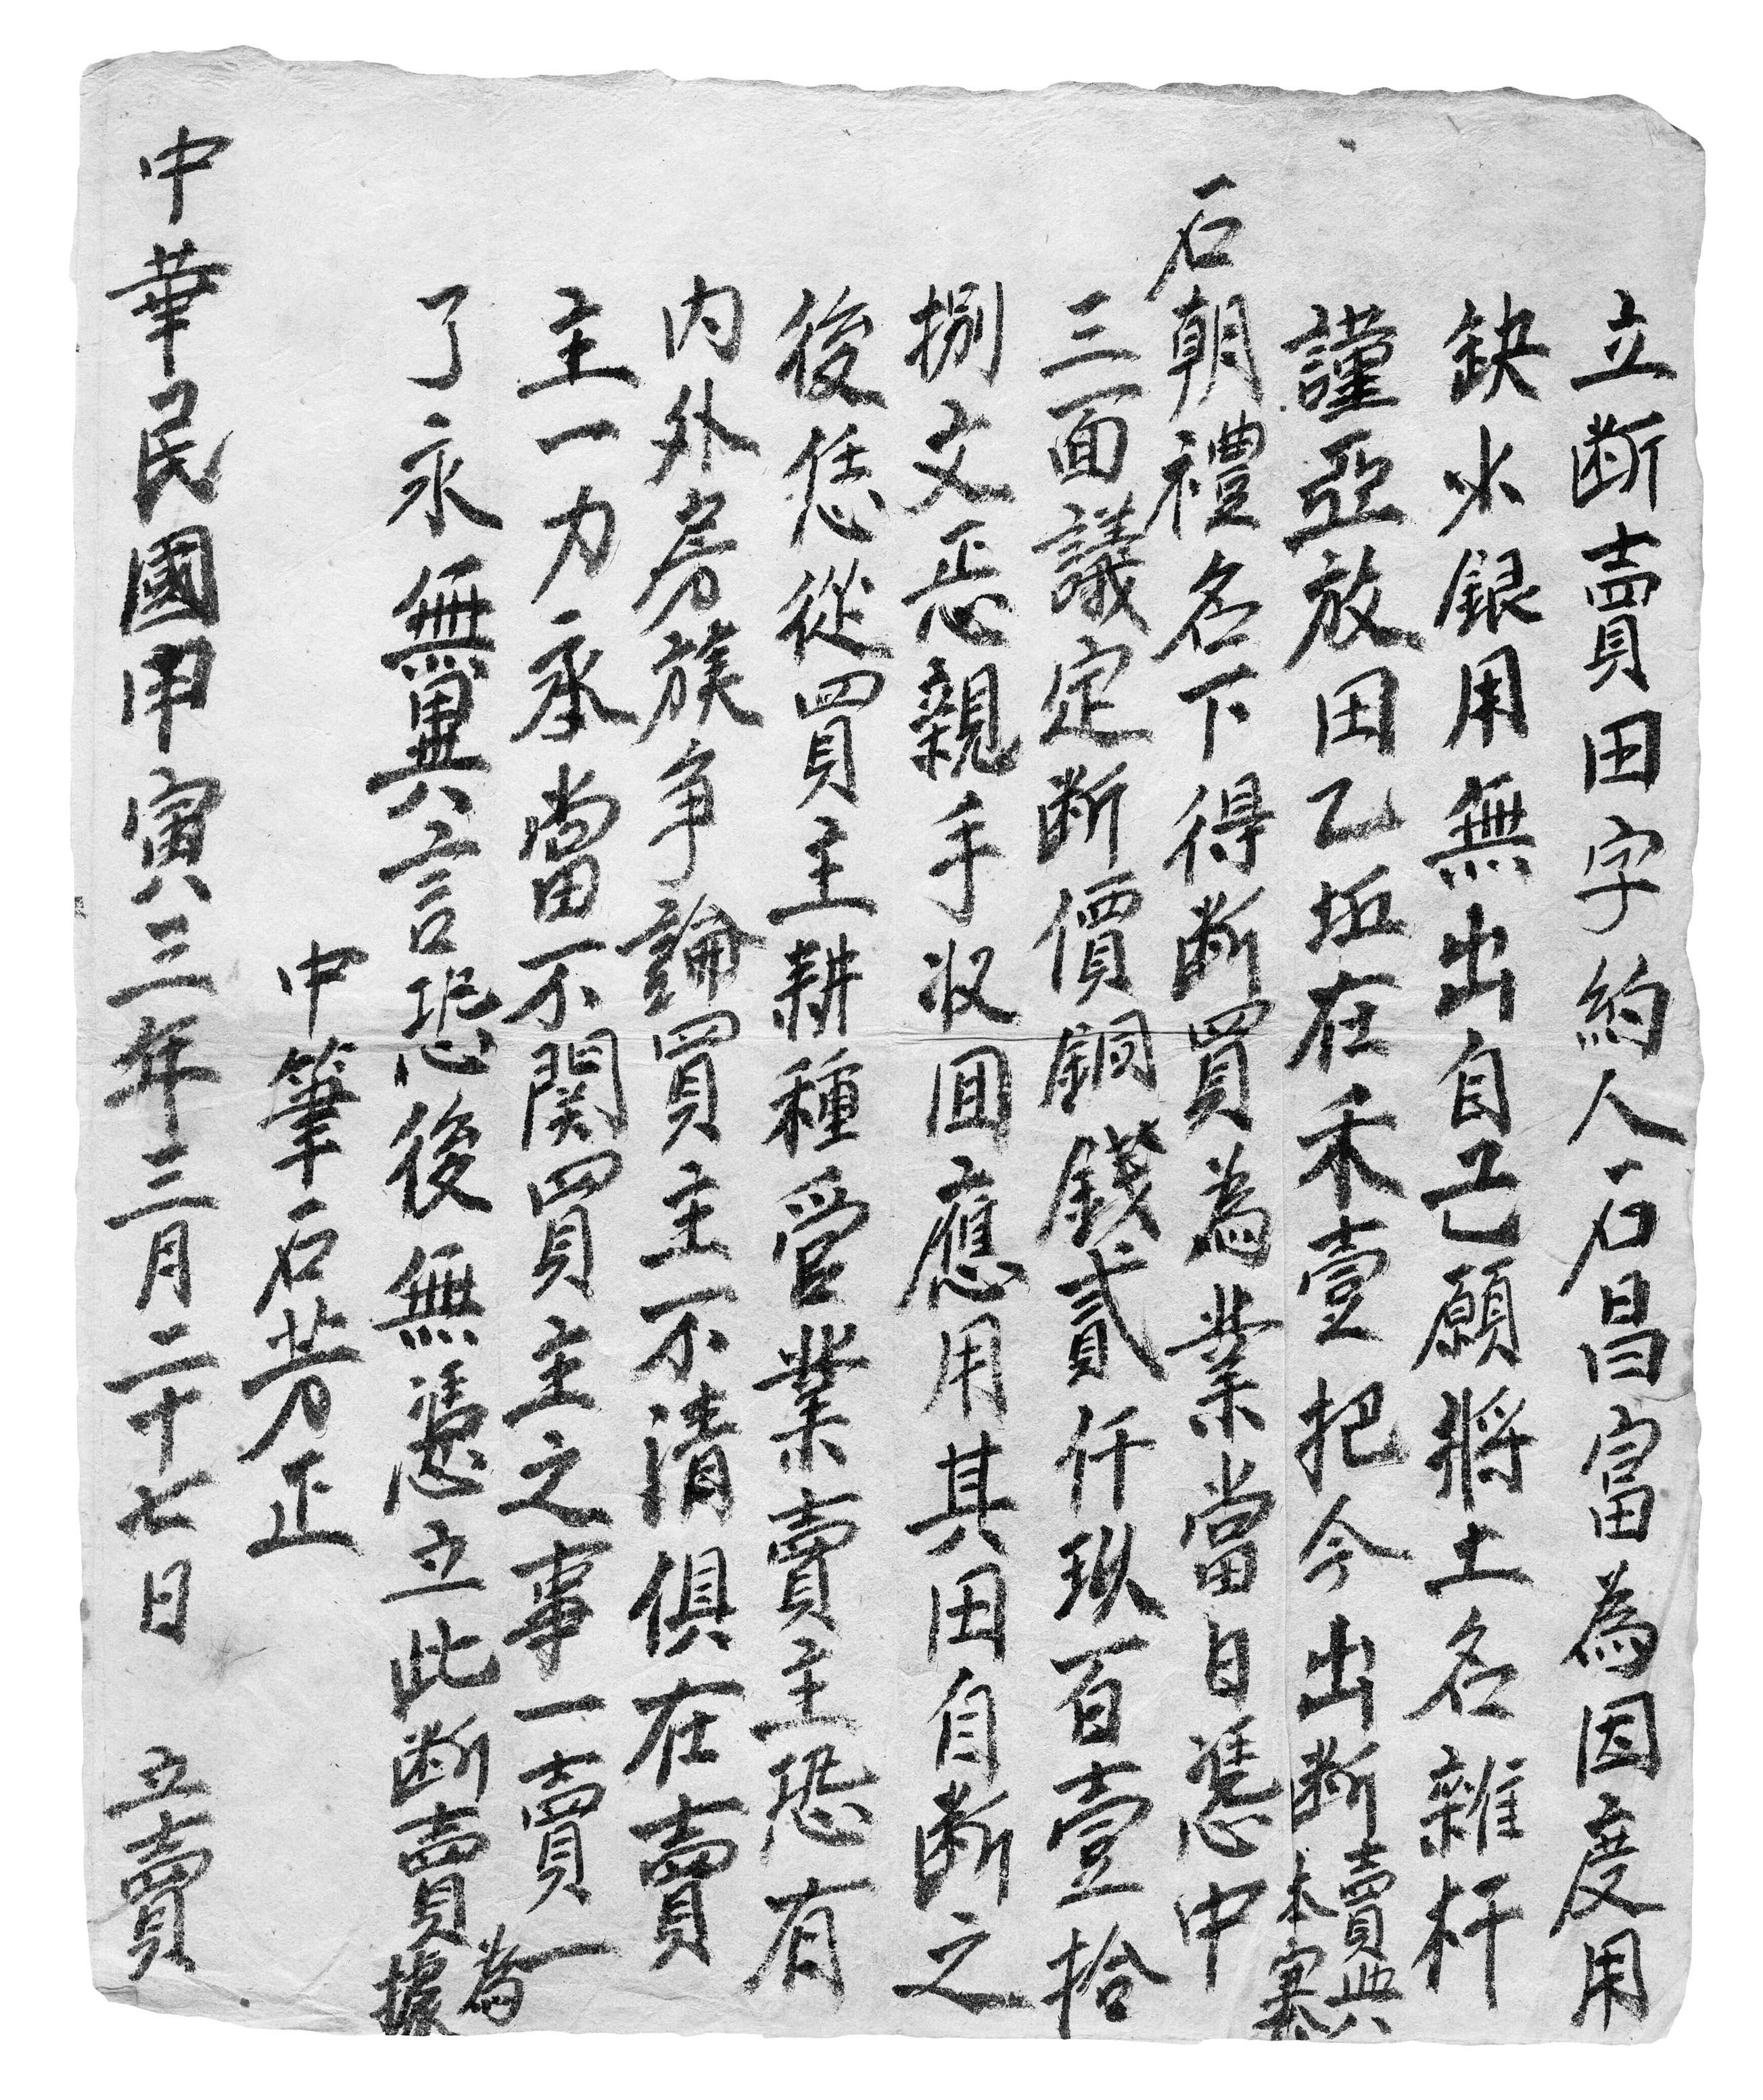 立断賣田字約人石昌富為因度用
缺少銀用無出自己願將土名雜杆
謹亞放田乙坵在禾壹把今出断賣與本寨
石朝禮名下得断買為業當日憑中
三面議定断價銅錢貳仟玖百壹拾
捌文悉親手收囬應用其田自断之
後恁從買主耕種管業賣主恐有
内外房族争論買主不清俱在賣
主一力承當不関買主之事一賣一
了永無異言恐後無憑立此断賣為據
中筆石芳正
中華民國甲寅三年三月二十七日 立賣